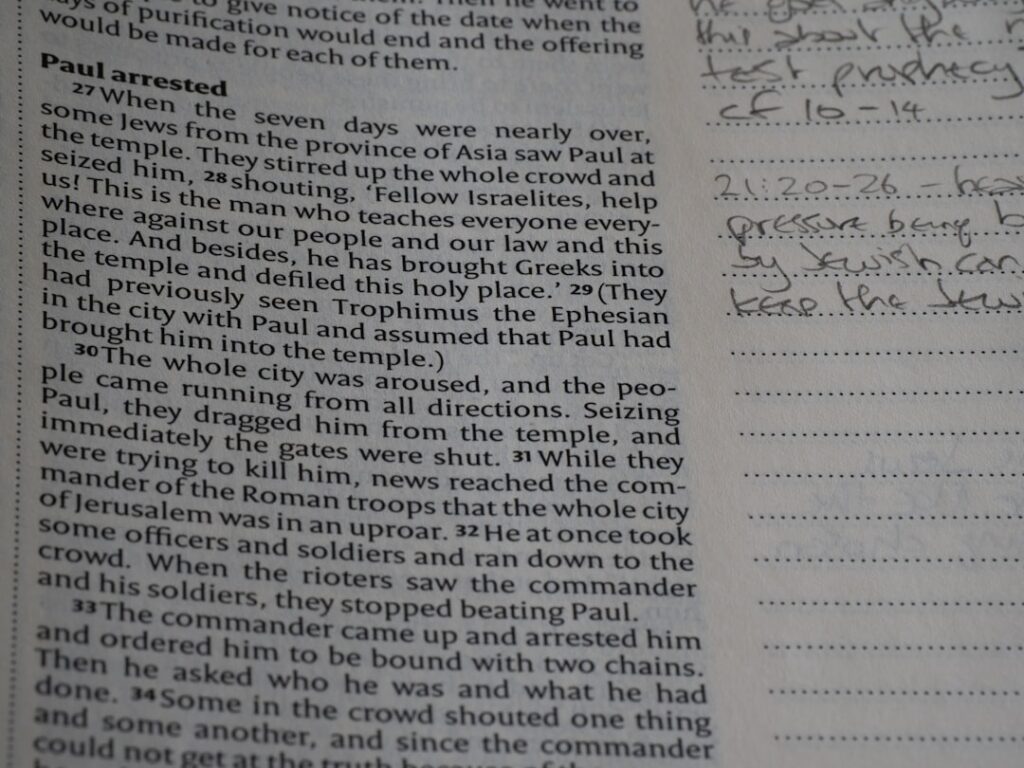 to give notice of the date when the
days of purification would end and the offering
would be made for each of them.
Paul arrested
27 When the seven days were nearly over,
some Jews from the province of Asia saw Paul at
the temple. They stirred up the whole crowd and
seized him, 28 shouting, ‘Fellow Israelites, help
us! This is the man who teaches everyone every-
where against our people and our law and this
place. And besides, he has brought Greeks into
the temple and defiled this holy place.’ 29 (They
had previously seen Trophimus the Ephesian
in the city with Paul and assumed that Paul had
brought him into the temple.)
30 The whole city was aroused, and the peo-
ple came running from all directions. Seizing
Paul, they dragged him from the temple, and
immediately the gates were shut. 31 While they
were trying to kill him, news reached the com-
mander of the Roman troops that the whole city
of Jerusalem was in an uproar. 32 He at once took
some officers and soldiers and ran down to the
crowd. When the rioters saw the commander
and his soldiers, they stopped beating Paul.
33 The commander came up and arrested him
and ordered him to be bound with two chains.
Then he asked who he was and what he had
done. 34 Some in the crowd shouted one thing
and some another, and since the commander
could not get at the truth because of the
this about the
test prophecy
cf 10-14
21:20-26 -
pressure being
by Jewish
keep the